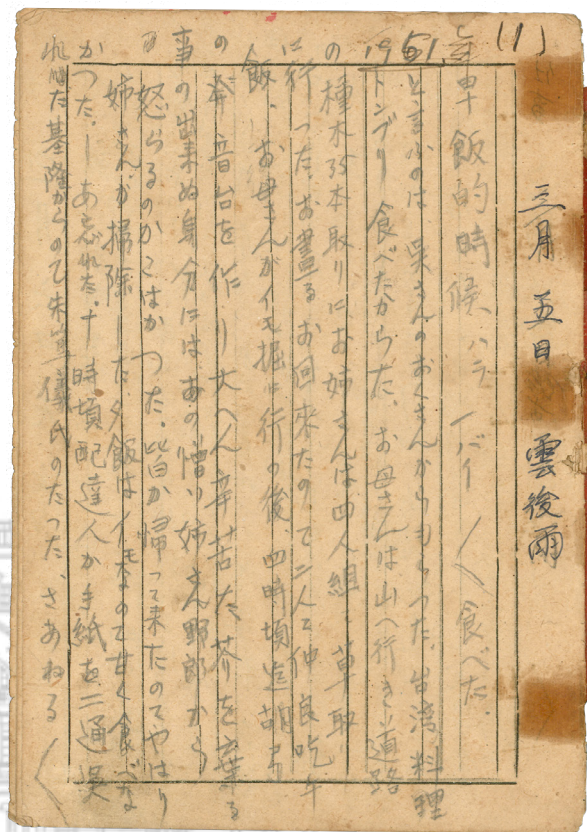 (1)
三月五日 雲後雨
早飯的時候ハラ一パイ〱食べた。
1951
と言ふのは 吳さんのおくさんからもらった、台湾料理
トンブリ食べたからだ、お母さんは山へ行き道路
の種木35本取りに、お姉さんは四人組 草取
に行った、お晝るお回来たので二人で仲良吃午
飯、お母さんがイモ掘に行の後 四時頃迄胡弓
の 音台を作り大へん辛苦た
事の出来ぬ身分にはあの憎い姉さん野郎から
怒らるのがこはかつた、皆が帰って来たのでやはり
姉さんが掃除した夕飯はイモなので甘く食べな
かつた、ーあ忘れた、十時頃配達人が手紙を二通
基隆からので朱 儀氏のだった、さあねる〱